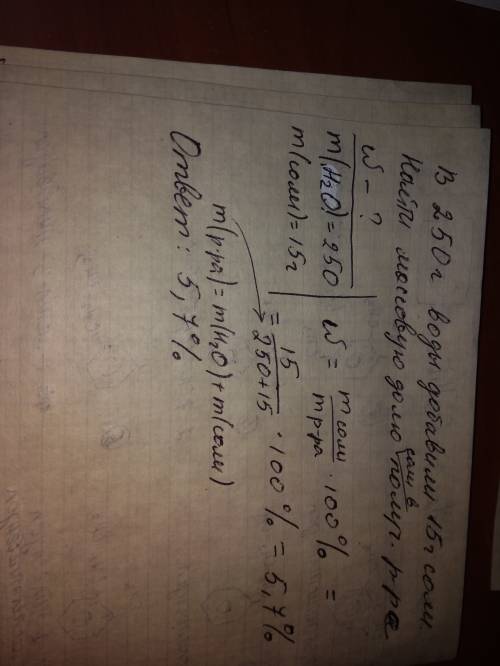 В 250г воды добавили 15г соли.
Найти массовую долю соли в получ. р-ра
ω - ?
m(H₂O)=250
m(соли)=15г
ω = m соли / m р-ра · 100% =
= 15 / 250+15 · 100% = 5,7%
m(р-ра)=m(H₂O)+m(соли)
Ответ: 5,7%